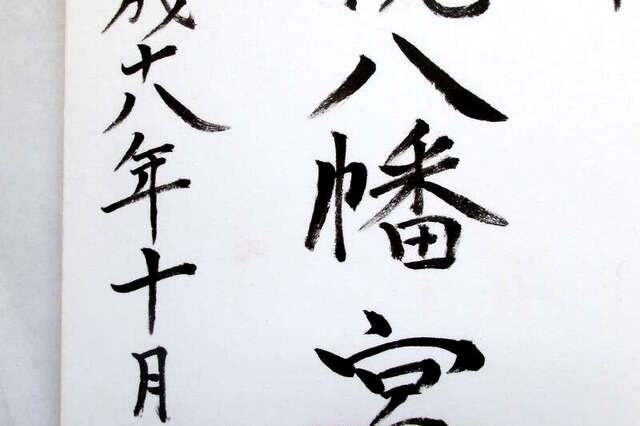 八幡宮
成十八年十月